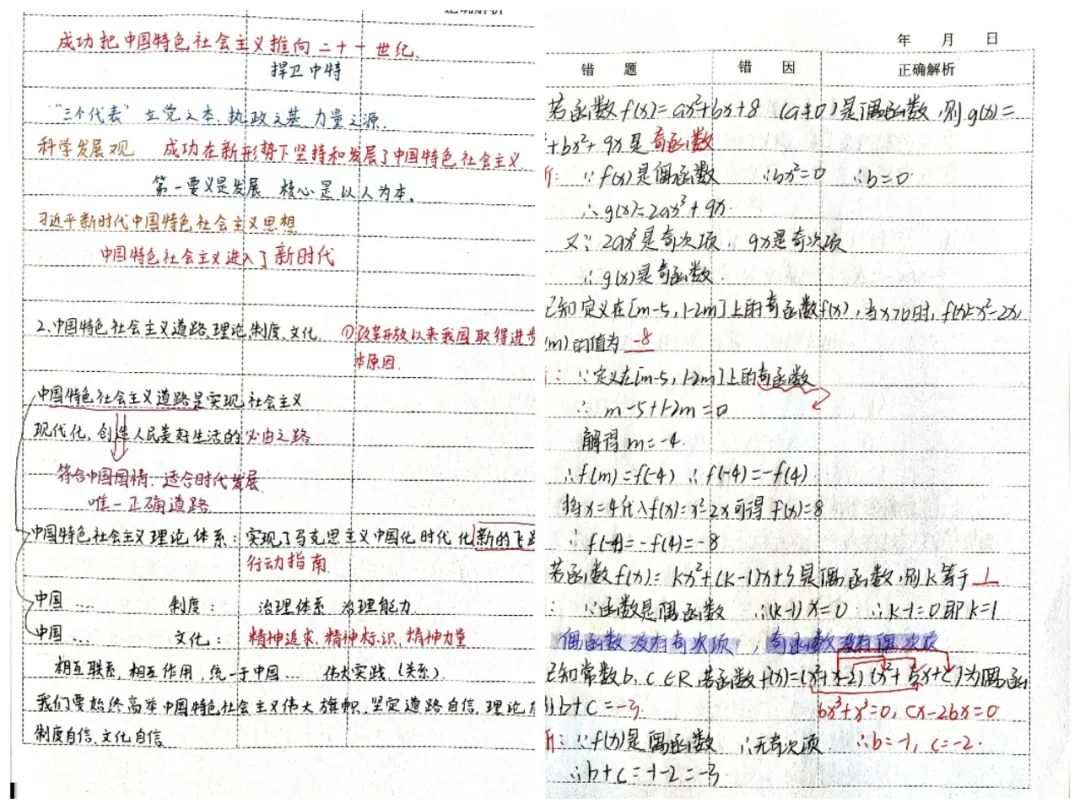 正确解析
成功把中国特色社会主义推向二十一世纪.
捍卫中特
“三个代表” 立党之本.执政之基 力量之源.
科学发展观 成功在新形势下坚持和发展了中国特色社会主义
第一要义是发展 核心是以人为本.
习近平新时代中国特色社会主义思想
中国特色社会主义进入了新时代
2.中国特色社会主义道路,理论,制度,文化 ①改革开放以来我国取得进步
本原因.
中国特色社会主义道路是实现社会主义
现代化,创造人民美好生活的必由之路
符合中国国情.适合时代发展
唯一正确道路
中国特色社会主义理论体系:实现了马克思主义中国化时代化新的飞
行动指南
中国... 制度: 治理体系 治理能力
中国... 文化: 精神追求,精神标识,精神力量
相互联系,相互作用,统一于中国... 伟大实践.(关系)
我们要始终高举中国特色社会主义伟大旗帜,坚定道路自信,理论
制度自信.文化自信
年 月 日
错 题 错 因 正确解析
若函数f(x)=ax²+bx+8 (a≠0)是偶函数,则g(x)=
+bx²+9x是奇函数
∵f(x)是偶函数 ∴bx²=0 ∴b=0
∴g(x)=2ax³+9x.
又∵2ax³是奇次项,9x是奇次项
∴g(x)是奇函数.
已知定义在[m-5,1-2m]上的奇函数f(x),当x>0时,f(x)=x²-2x,
(m)的值为 -8
∵定义在[m-5,1-2m]上的奇函数
∴m-5+1-2m=0
解得m=-4.
∴f(m)=f(-4) ∵f(-4)=-f(4)
将x=4代入f(x)=x²-2x可得f(x)=8
∴f(-4)=-f(4)=-8
若函数f(x)=kx²+(k-1)x+3是偶函数,则k等于 1
∵函数是偶函数 ∴(k-1)x=0 ∴k-1=0即k=1
偶函数没有奇次项,奇函数没有偶次项
已知常数b,c∈R,若函数f(x)=(x²+x-2)(x²+bx+c)为偶函
b+c=-3 bx³+x³=0,cx-2bx=0
∵f(x)是偶函数 ∴无奇次项 ∴b=-1,c=-2.
∴b+c=-1-2=-3